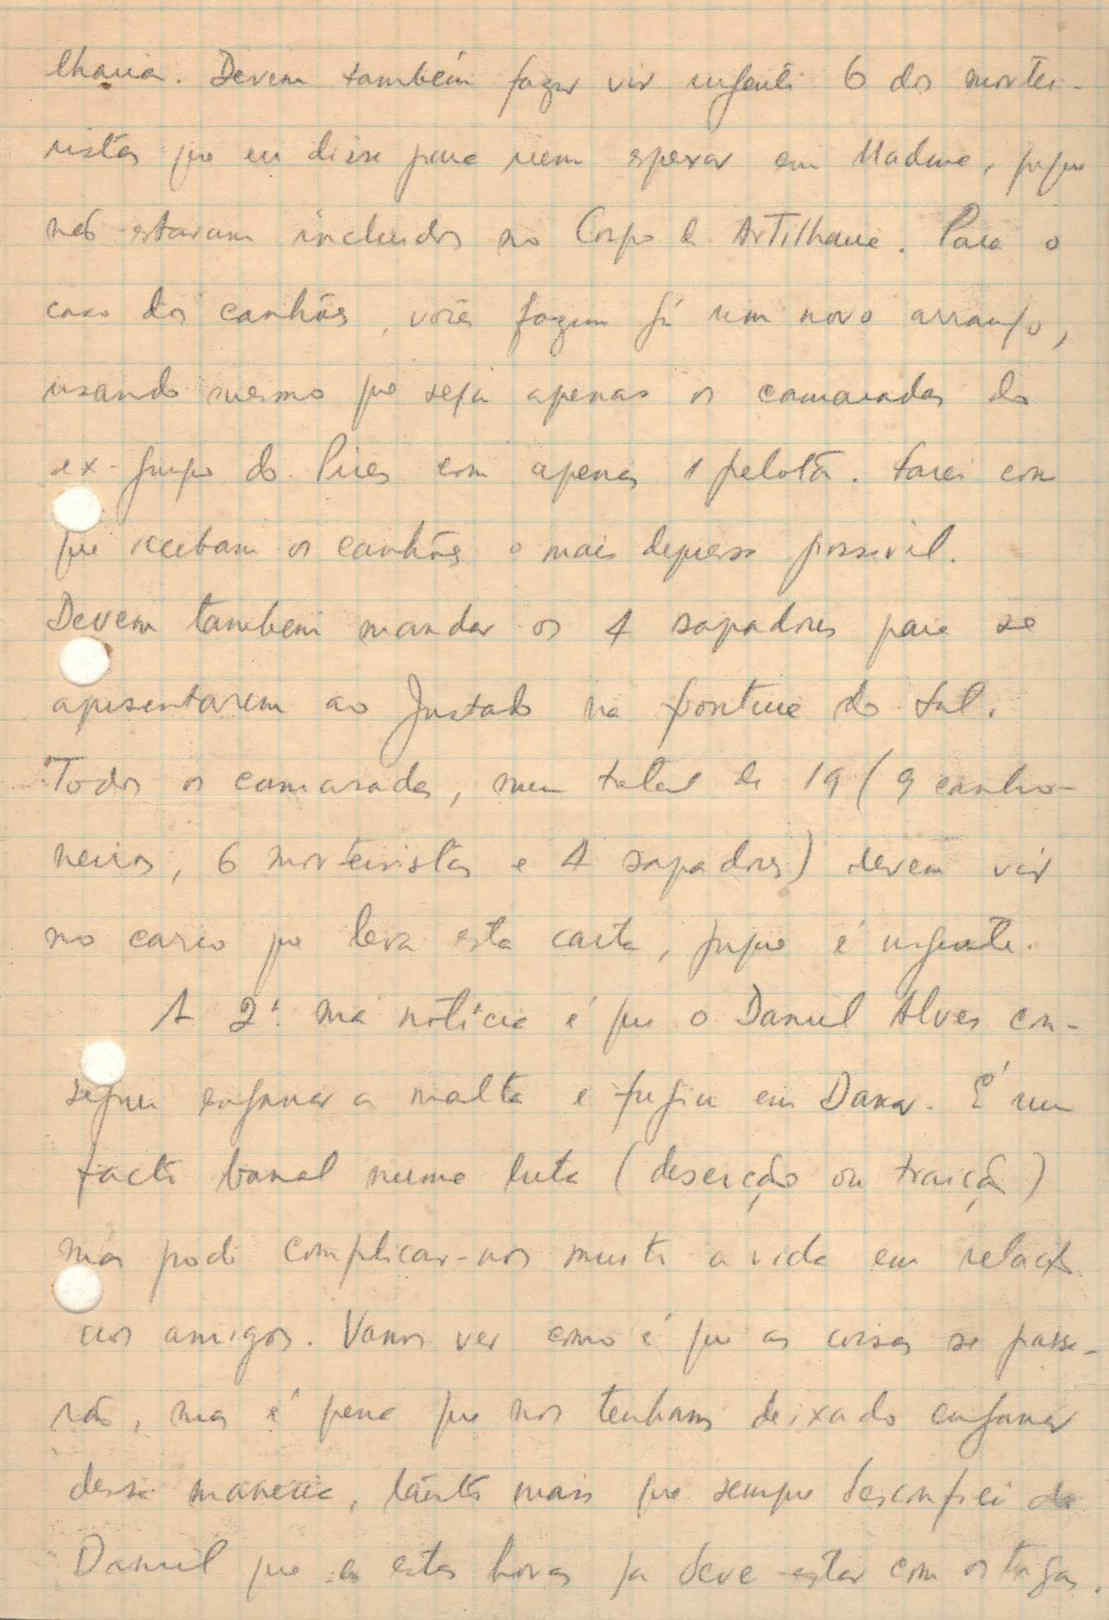 lharia. Devem também fazer vir urgente 6 dos mortei-
ristas que eu disse para irem esperar em Madina, porque
não estavam incluidos no Corpo de Artilharia. Para o
caso dos canhões, vocês fazem já um novo arranjo,
usando mesmo que seja apenas os camaradas do
ex-grupo do Pires com apenas 1 pelotão. Farei com
que recebam os canhões o mais depressa possivel.
Devem tambem mandar os 4 sapadores para se
apresentarem ao Justado na fronteira do Sul.
Todos os camaradas, num total de 19 (9 canho-
neiros, 6 morteiristas e 4 sapadores) devem vir
no carro que leva esta carta, porque é urgente.
A 2ª. má notícia é que o Daniel Alves con-
seguiu enganar a malta e fugiu em Dakar. É um
facto banal numa luta (deserção ou traição)
mas pode complicar-nos muito a vida em relação
aos amigos. Vamos ver como é que as coisas se passa-
rão, mas é pena que nos tenham deixado enganar
dessa maneira, tanto mais que sempre desconfiei do
Daniel que a estas horas já deve estar com os tugas.